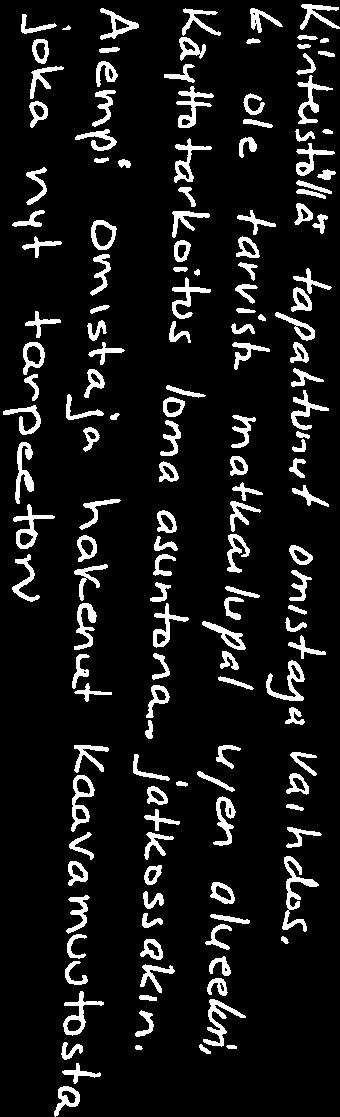 Kiinteistöllä tapahtunut omistaja vaihdos.
Ei ole tarvista matkailupal ujen alueeksi,
Käyttötarkoitus loma asuntona... jatkossakin.
Aiempi omistaja hakenut kaavamuutosta
joka nyt tarpeeton